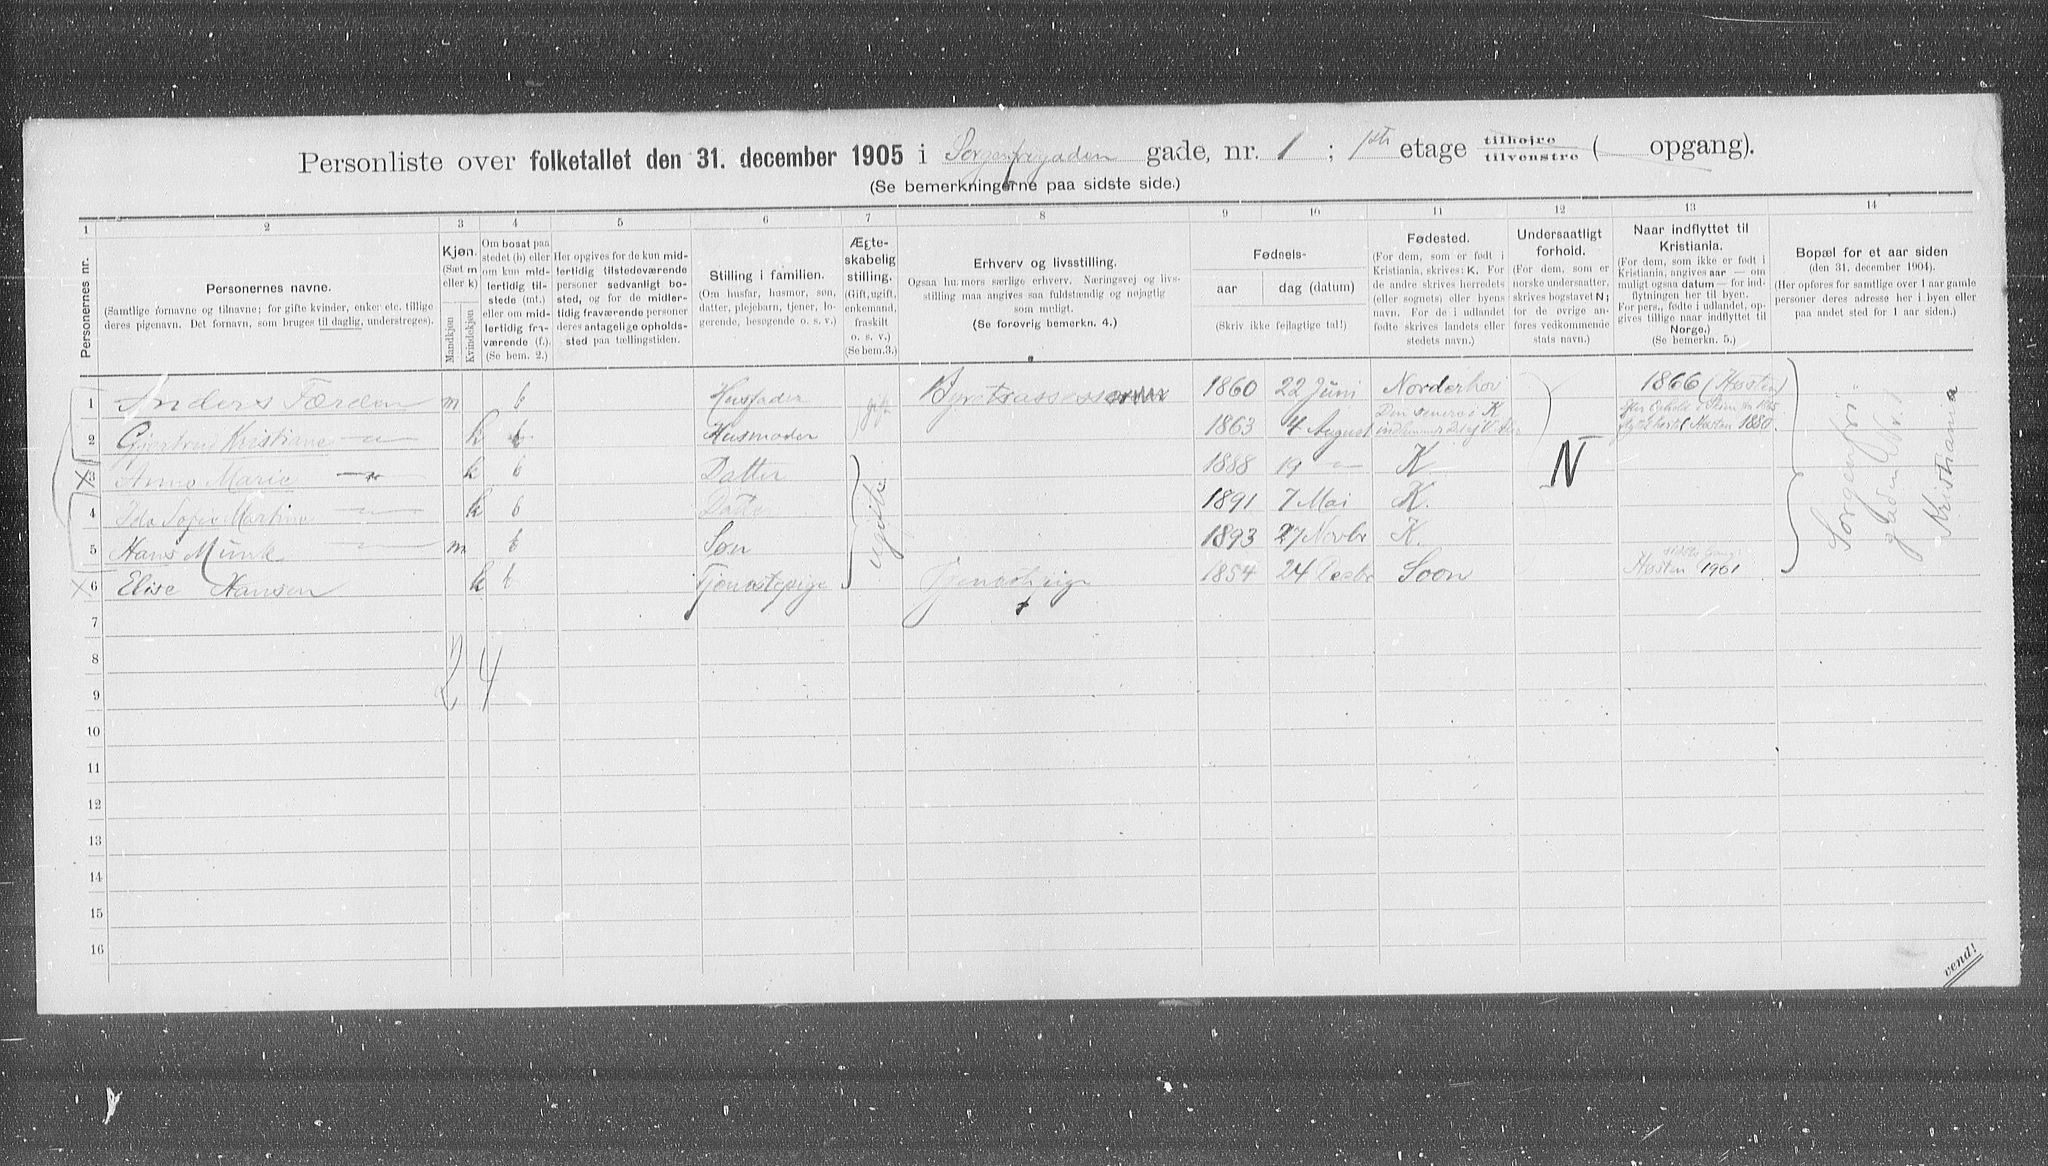 Personliste over folketallet den 31. december 1905 i Sorgenfrigaden gade, nr. 1 ; 1ste etage tilhøjre tilvenstre ( opgang).
(Se bemerkningerne paa sidste side.)
1 2 3 4 5 6 7 8 9 10 11 12 13 14
Personernes nr.
Personernes navne.
(Samtlige fornavne og tilnavne; for gifte kvinder, enker etc. tillige
deres pigenavn. Det fornavn, som bruges til daglig, understreges).
Kjøn.
(Sæt m
eller k)
Mandkjøn
Kvindekjøn
Om bosat paa
stedet (b) eller
om kun mid-
lertidig til-
stede (mt.)
eller om mid-
lertidig fra-
værende (f.).
(Se bem. 2.)
Her opgives for de kun mid-
lertidig tilstedeværende
personer sedvanlig bo-
sted, og for de midler-
tidig fraværende personer
deres antagelige opholds-
sted paa tællingstiden.
Stilling i familien.
(Om husfar, husmor, søn,
datter, plejebarn, tjener, lo-
gerende, besøgende o. s. v.)
Ægte-
skabelig
stilling.
(Gift, ugift,
enkemand,
fraskilt
o. s. v.)
(Se bem.3.)
Erhverv og livsstilling.
Ogsaa husmors særlige erhverv. Næringsvej og livs-
stilling maa angives saa fuldstændig og nøjagtig
som muligt.
(Se forøvrig bemerkn. 4.)
Fødsels-
aar dag (datum)
(Skriv ikke fejlagtige tal!)
Fødested.
(For dem, som er født i
Kristiania, skrives: K. For
de andre skrives herredets
(eller sognets) eller byens
navn. For de i udlandet
fødte skrives landets eller
stedets navn.)
Undersaatligt
forhold.
(For dem, som er
norske undersaatter,
skrives bogstavet N;
for de øvrige an-
føres vedkommende
stats navn.)
Naar indflyttet til
Kristiania.
(For dem, som ikke er født i
Kristiania, angives aar — om
muligt ogsaa datum — for ind-
flytningen her til byen.
For pers., fødte i udlandet, op-
gives tillige naar indflyttet til
Norge.)
(Se bemerkn. 5.)
Bopæl for et aar siden
(den 31. december 1904).
(Her opføres for samtlige over 1 aar gamle
personer deres adresse her i byen eller
paa andet sted for 1 aar siden.)
1 Anders Færden m b Husfader gift Byretsassessor 1860 22 Juni Norderhov 1866 (Høsten)
2 Gjertrud Kristiane —„— k b Husmoder 1863 4 August Høsten 1880.
3 Anna Marie —„— k b Datter 1888 19 —„— K.
4 Ida Sofie Martine —„— k b Datter 1891 7 Mai K.
5 Hans Munk —„— m b Søn 1893 27 Novbr K.
6 Elise Hansen k b Tjenestepige Tjenestepige 1854 24 Decbr Soon Høsten 1901
ugifte
N
Sorgenfri-
gaden Nr. 1
Kristiania
7
8
9
2 4
10
11
12
13
14
15
16
vend!